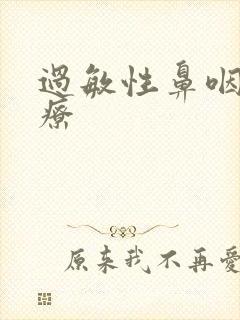 過敏性鼻咽
療
原来我不再愛